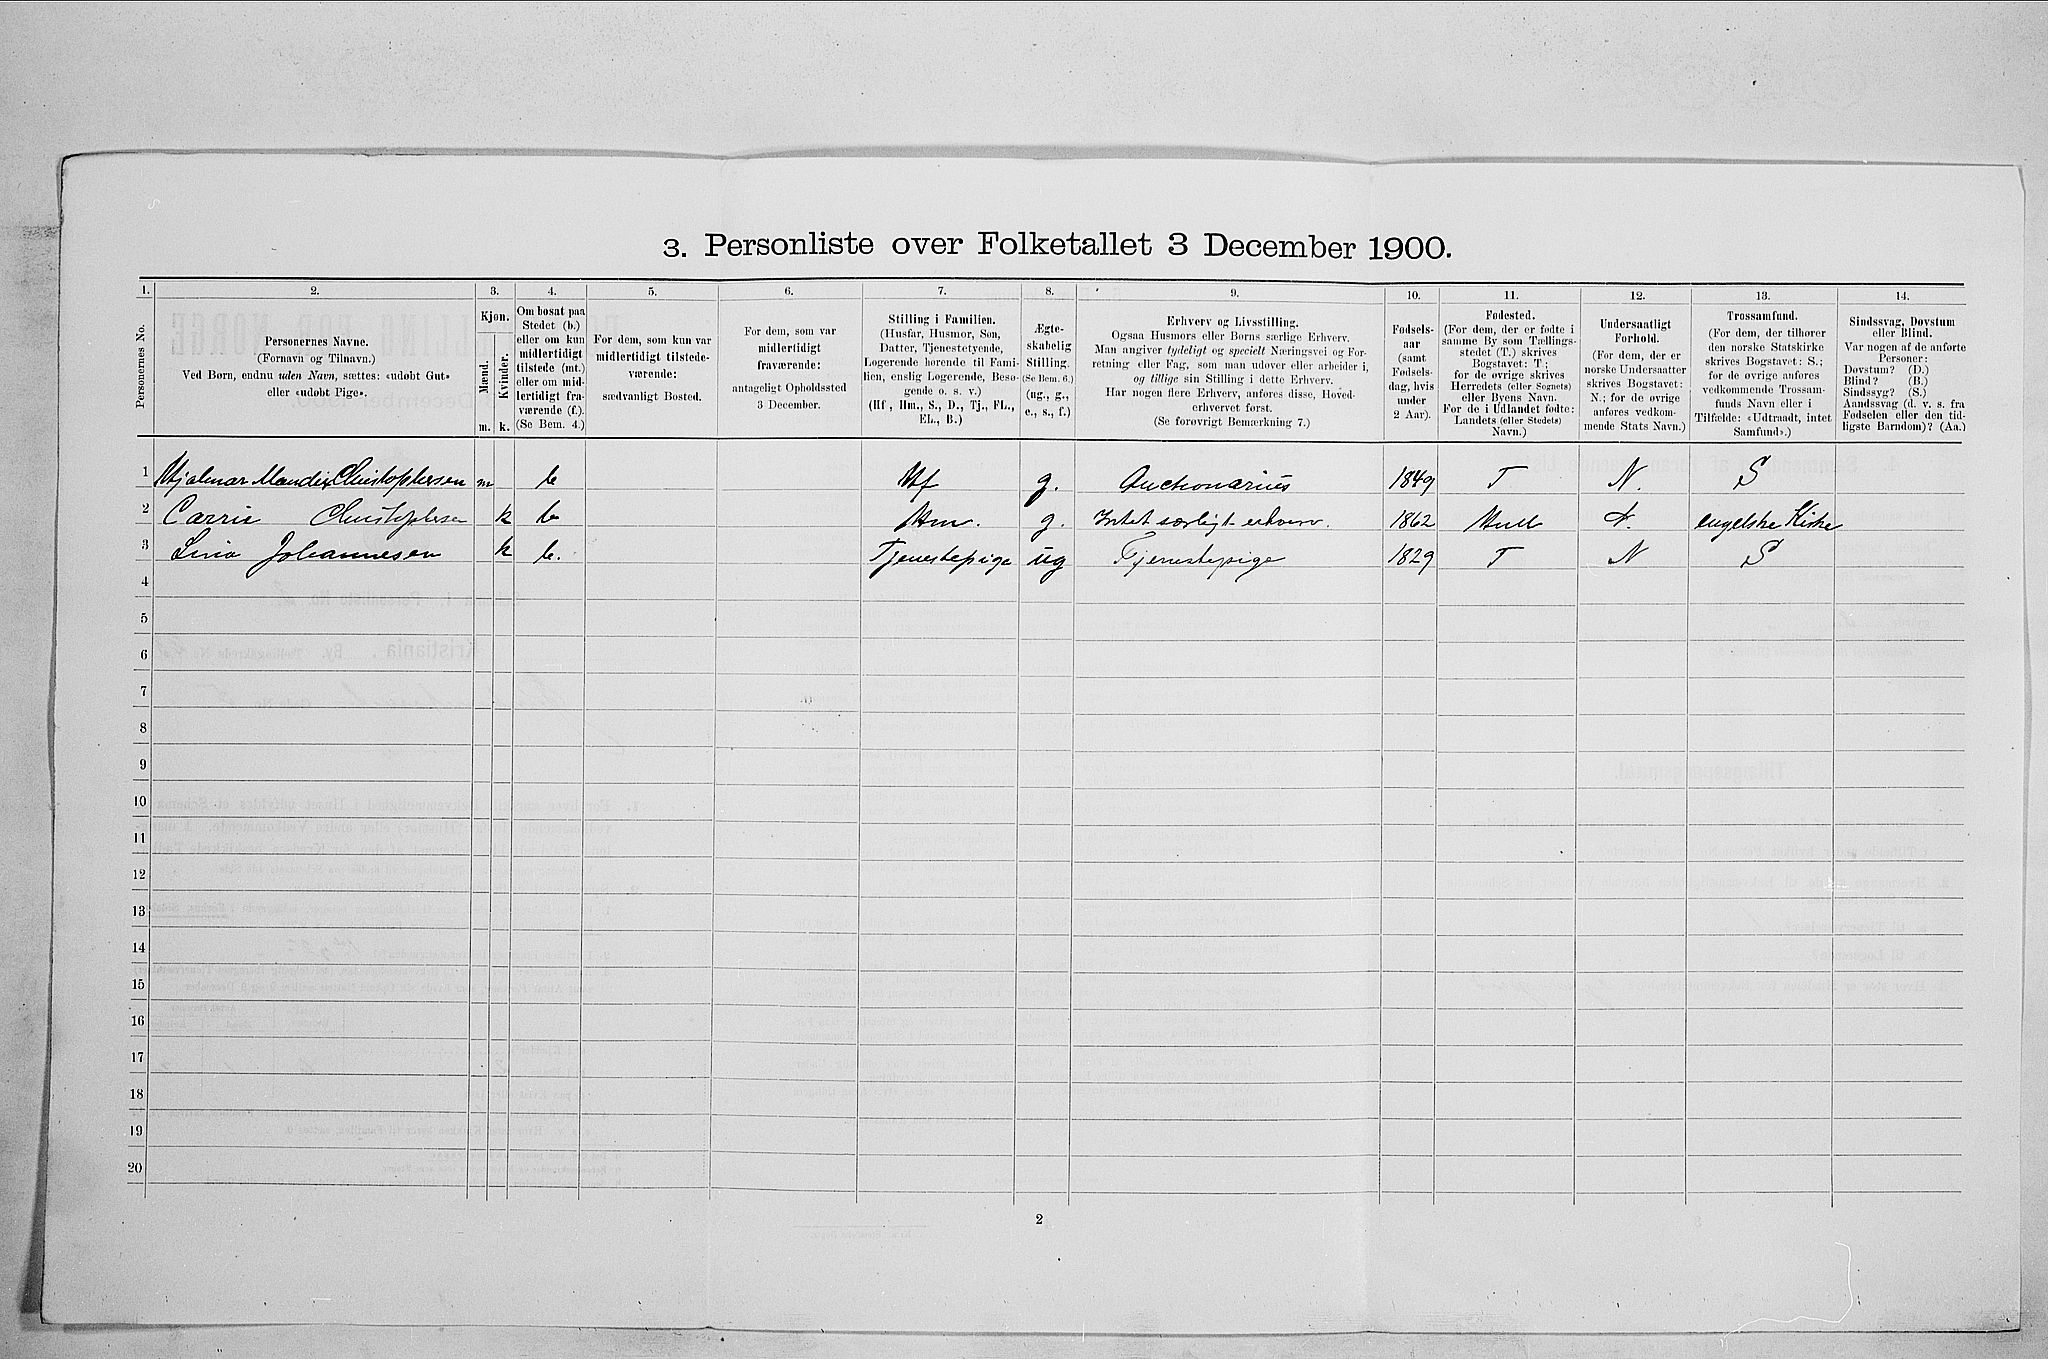 3. Personliste over Folketallet 3 December 1900.
1. 2. 3. 4. 5. 6. 7. 8. 9. 10. 11. 12. 13. 14.
Personernes No.
Personernes Navne.
(Fornavn og Tilnavn.)
Ved Børn, endnu uden Navn, sættes: «udøbt Gut»
eller «udøbt Pige».
Kjøn.
Mænd.
Kvinder.
m. k.
Om bosat paa
Stedet (b.)
eller om kun
midlertidigt
tilstede (mt.)
eller om mid-
lertidigt fra-
værende (f.).
(Se Bem. 4.)
For dem, som kun var
midlertidigt tilstede-
værende:
sædvanligt Bosted.
For dem, som var
midlertidigt
fraværende:
antageligt Opholdssted
3 December.
Stilling i Familien.
(Husfar, Husmor, Søn,
Datter, Tjenestetyende,
Logerende hørende til Fami-
lien, enslig Logerende, Besø-
gende o. s. v.)
(Hf., Hm., S., D., Tj., FL.,
EL., B.)
Ægte-
skabelig
Stilling.
(Se Bem. 6.)
(ug., g.,
e., s., f.)
Erhverv og Livsstilling.
Ogsaa Husmors eller Børns særlige Erhverv.
Man angiver tydeligt og specielt Næringsvei og For-
retning eller Fag, som man udover eller arbeider i,
og tillige sin Stilling i dette Erhverv.
Har nogen flere Erhverv, anføres disse, Hoved-
erhvervet først.
(Se forøvrigt Bemærkning 7.)
Fødsels-
aar
(samt
Fødsels-
dag, hvis
under
2 Aar).
Fødested.
(For dem, der er fødte i
samme By som Tællings-
stedet (T.) skrives
Bogstavet: T;
for de øvrige skrives
Herredets (eller Sognets)
eller Byens Navn.
For de i Udlandet fødte:
Landets (eller Stedets)
Navn.)
Undersaatligt
Forhold.
(For dem, der er
norske Undersaatter
skrives Bogstavet:
N.; for de øvrige
anføres vedkom-
mende Stats Navn.)
Trossamfund.
(For dem, der tilhører
den norske Statskirke
skrives Bogstavet: S.;
for de øvrige anføres
vedkommende Trossam-
funds Navn eller i
Tilfælde: «Udtraadt, intet
Samfund».)
Sindssvag, Døvstum
eller Blind.
Var nogen af de anførte
Personer:
Døvstum? (D.)
Blind? (B.)
Sindssyg? (S.)
Aandssvag (d. v. s. fra
Fødselen eller den tid-
ligste Barndom)? (Aa.)
1 Hjalmar Christophersen m b Hf g. Auctionarius 1849 T N. S
2 Carrie Christophersen k b Hm. g. Intet særligt erhverv. 1862 Hull N. engelske Kirke
3 Lina Johannesen k b. Tjenestepige ug Tjenestepige 1829 T N S
4
5
6
7
8
9
10
11
12
13
14
15
16
17
18
19
20
2